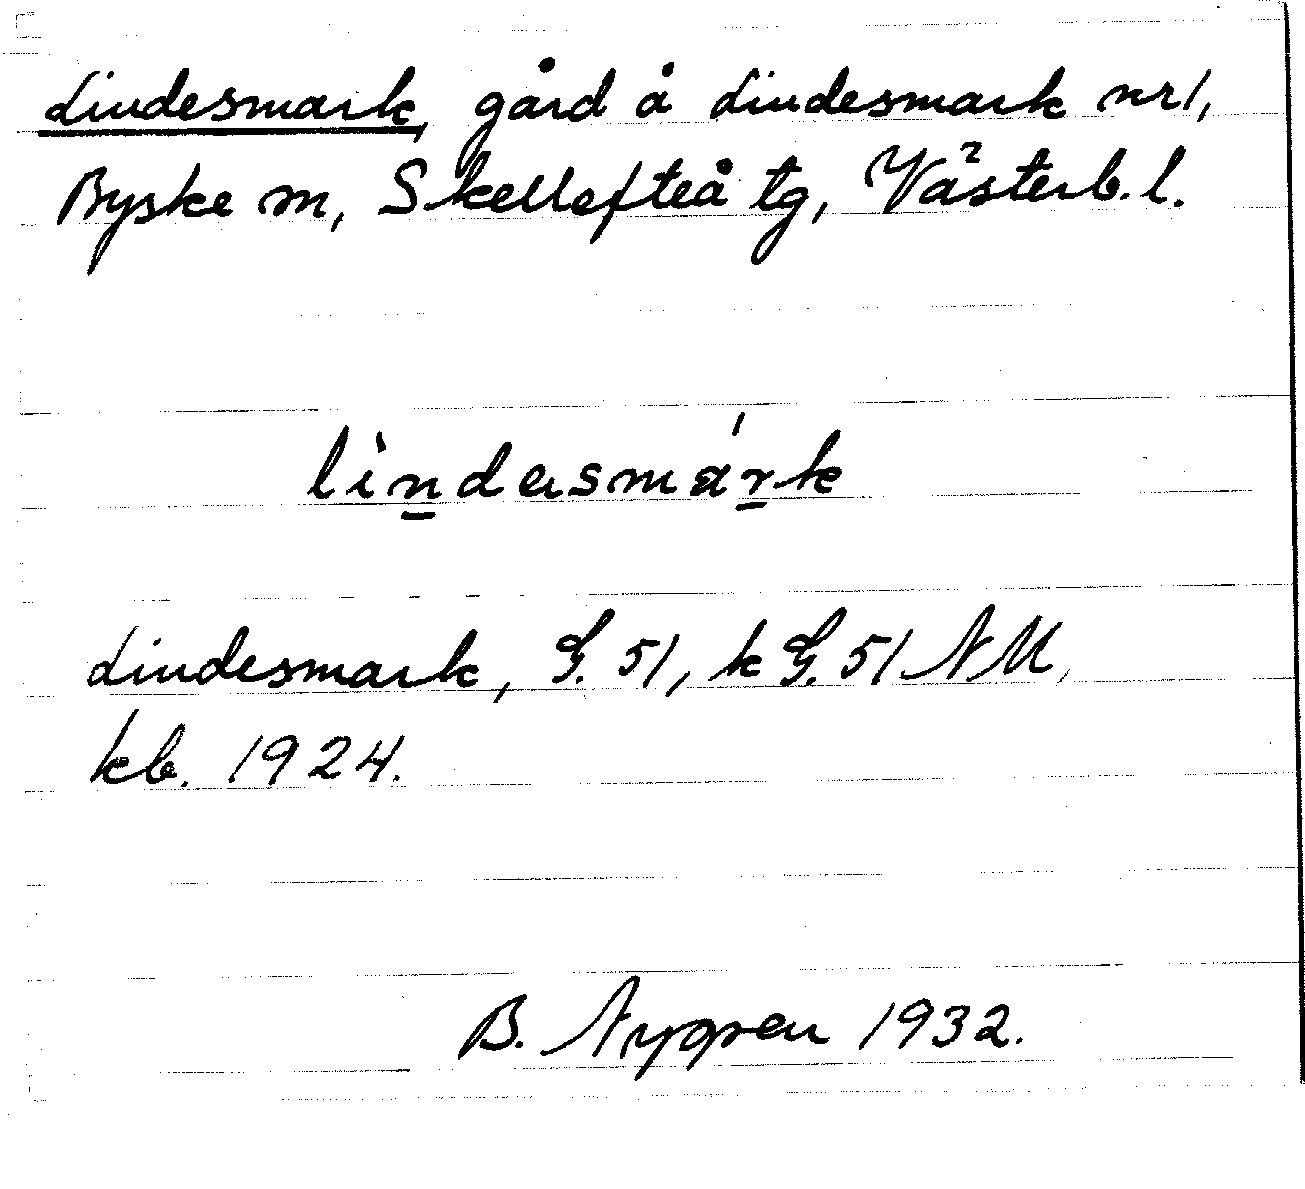 Lindesmark, gård å Lindesmark nr 1,
Byske sn, Skellefteå tg, Västerb. l.
lìndasmárk
Lindesmark, G. 51, k G. 51 NM,
kb. 1924.
B. Nygren 1932.